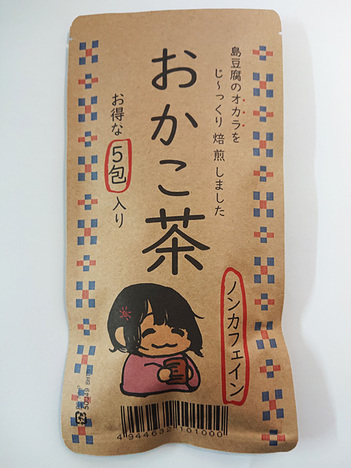 島豆腐のオカラを
じ〜っくり焙煎しました
おかこ茶
お得な5包入り
ノンカフェイン
4944652101000